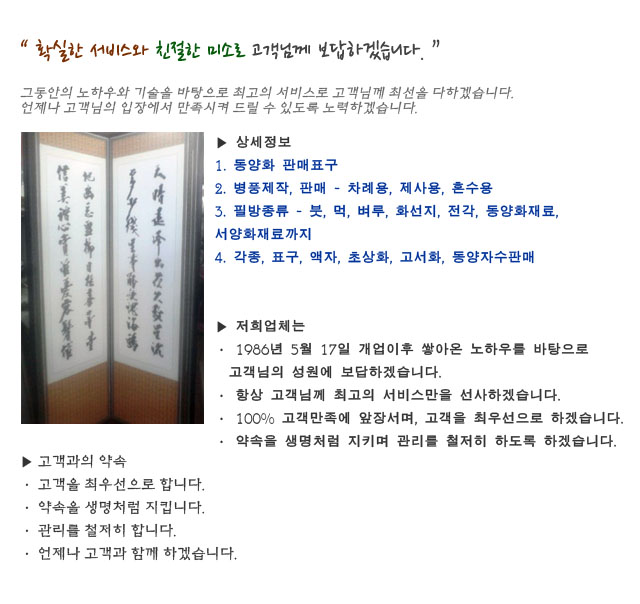 “ 확실한 서비스와 친절한 미소로 고객님께 보답하겠습니다. ”
그동안의 노하우와 기술을 바탕으로 최고의 서비스로 고객님께 최선을 다하겠습니다.
언제나 고객님의 입장에서 만족시켜 드릴 수 있도록 노력하겠습니다.
▶ 상세정보
1. 동양화 판매표구
2. 병풍제작, 판매 - 차례용, 제사용, 혼수용
3. 필방종류 - 붓, 먹, 벼루, 화선지, 전각, 동양화재료,
서양화재료까지
4. 각종, 표구, 액자, 초상화, 고서화, 동양자수판매
▶ 저희업체는
· 1986년 5월 17일 개업이후 쌓아온 노하우를 바탕으로
고객님의 성원에 보답하겠습니다.
· 항상 고객님께 최고의 서비스만을 선사하겠습니다.
· 100% 고객만족에 앞장서며, 고객을 최우선으로 하겠습니다.
· 약속을 생명처럼 지키며 관리를 철저히 하도록 하겠습니다.
▶ 고객과의 약속
· 고객을 최우선으로 합니다.
· 약속을 생명처럼 지킵니다.
· 관리를 철저히 합니다.
· 언제나 고객과 함께 하겠습니다.